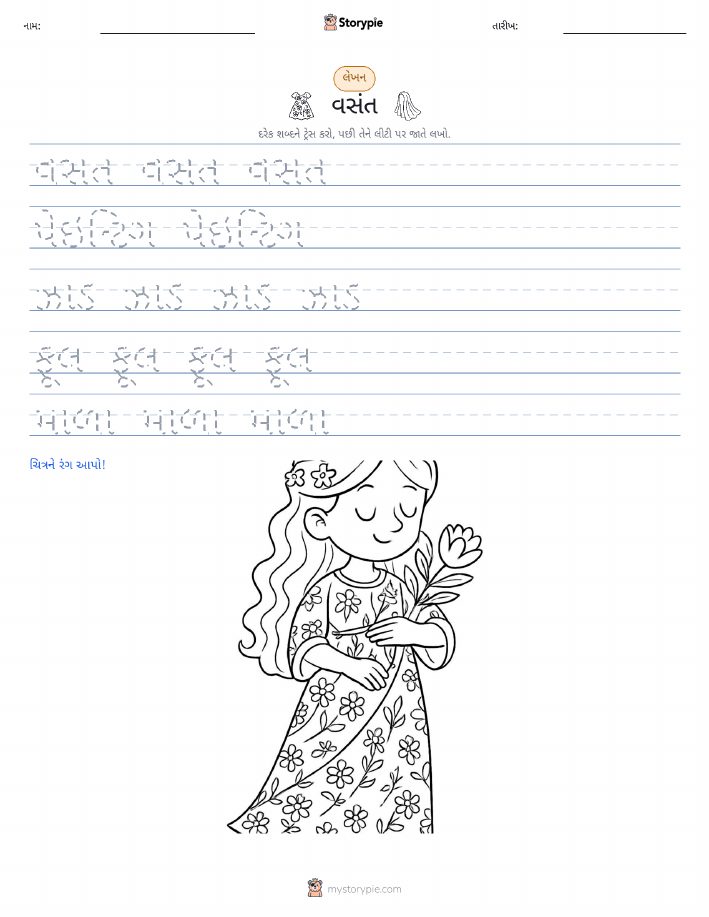 નામ: Storypie તારીખ:
લેખન
વસંત
દરેક શબ્દને ટ્રેસ કરો, પછી તેને લીટી પર જાતે લખો.
વસંત વસંત વસંત
પેઇન્ટિંગ પેઇન્ટિંગ
ઝાડ ઝાડ ઝાડ ઝાડ
ફૂલ ફૂલ ફૂલ ફૂલ
માળા માળા માળા
ચિત્રને રંગ આપો!
mystorypie.com